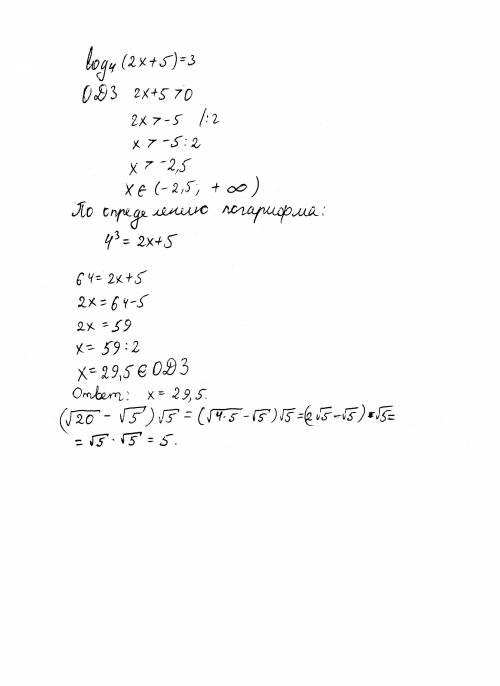 log₄(2x+5)=3
ОДЗ 2x+5>0
2x>-5 /:2
x>-5:2
x>-2,5
x∈(-2,5; +∞)
По определению логарифма:
4³=2x+5
64=2x+5
2x=64-5
2x=59
x=59:2
x=29,5∈ОДЗ
Ответ: x=29,5.
(√20-√5)√5=(√4·5-√5)√5=(2√5-√5)·√5=
=√5·√5=5.